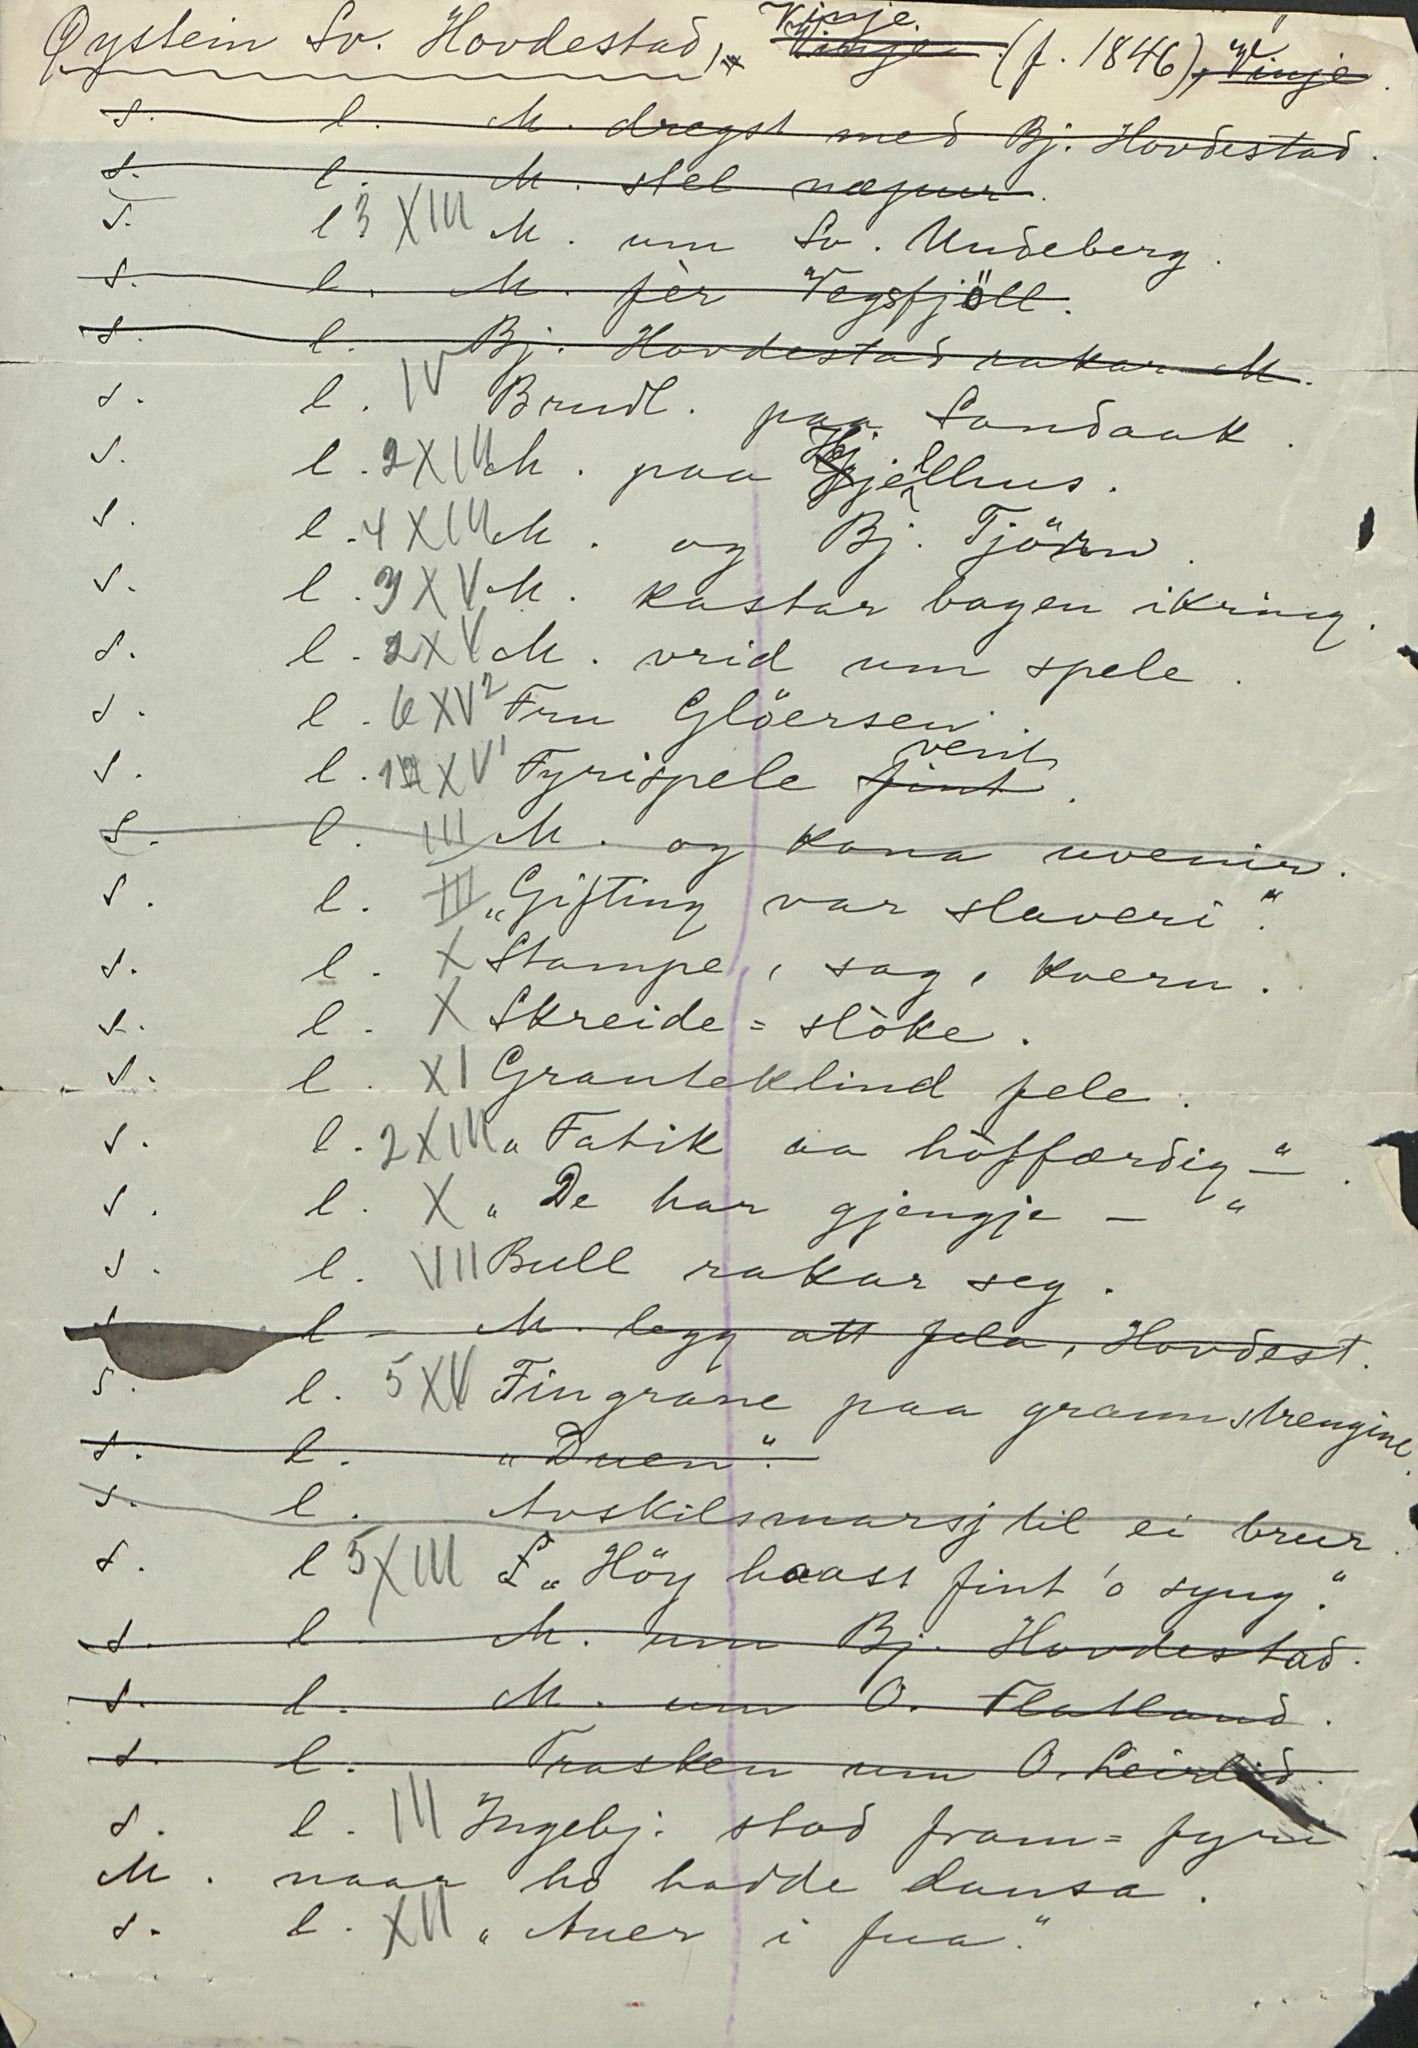 Øystein Sv. Hovdestad, Vinje. Vinje (f. 1846), Vinje.
s. l. M. dregst med Bj. Hovdestad.
s. l. M. stel næpur.
s. l 3 XIII M. um Sv. Undeberg.
s. l. M. fèr Vegsfjöll.
s. l. Bj. Hovdestad rakar M.
s. l. IV Brudl. paa Sandaak.
s. l. 2 XIII M. paa Hjellhus.
s. l. 4 XIII M. og Bj. Tjörn.
s. l. 3 XV M. kastar bogen ikring.
s. l. 2 XV M. vrid um spele.
s. l. 6 XV2 Fru Glöersen.
s. l. XV1 Fyrispele fint vent.
s. l. III M. og kona uvenir.
s. l. III „Gifting var slaveri".
s. l. X Stampe, sag, kvern.
s. l. X Skreide = slöke.
s. l. XI Granteklind fele.
s. l. 2 XIII „Fatik aa höffærdig - ".
s. l. X „De har gjengje - "
s. l. VII Bull rakar seg.
s. l. M. legg att fela, Hovdest.
s. l. 5 XV Fingrane paa grannstrengine.
s. l. „Duen".
s. l. Avskilsmarsj til ei brur.
s. l 5 XIII „Höy haast fint 'o syng".
s. l. M. um Bj. Hovdestad.
s. l. M. um O. Flatland.
s. l. Frasken um O. Leirlid.
s. l. III Ingebj. stod fram = fyre
M. naar ho hadde dansa.
s. l. XII „Auer i fua."